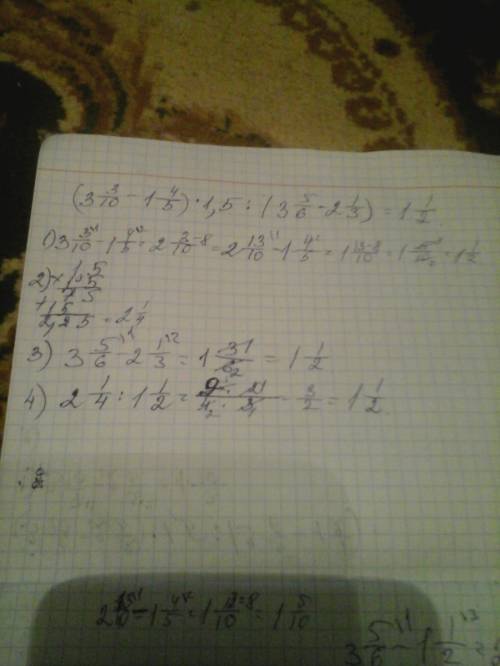 (3 3/10 − 1 4/5) · 1,5 : (3 5/6 − 2 1/3) = 1 1/2
1) 3 3/10 − 1 4/5 = 2 3−8/10 = 2 13/10 − 1 4/5 = 1 13−8/10 = 1 5/10 = 1 1/2
2) × 1,5
1,5
+ 75
15
2,25 = 2 1/4
3) 3 5/6 − 2 1/3 = 1 3/6 = 1 1/2
4) 2 1/4 : 1 1/2 = 9 · 2/4 · 3 = 3/2 = 1 1/2
2 13/10 − 1 4/5 = 1 13−8/10 = 1 5/10
3 5/6 − 1 1/2 =